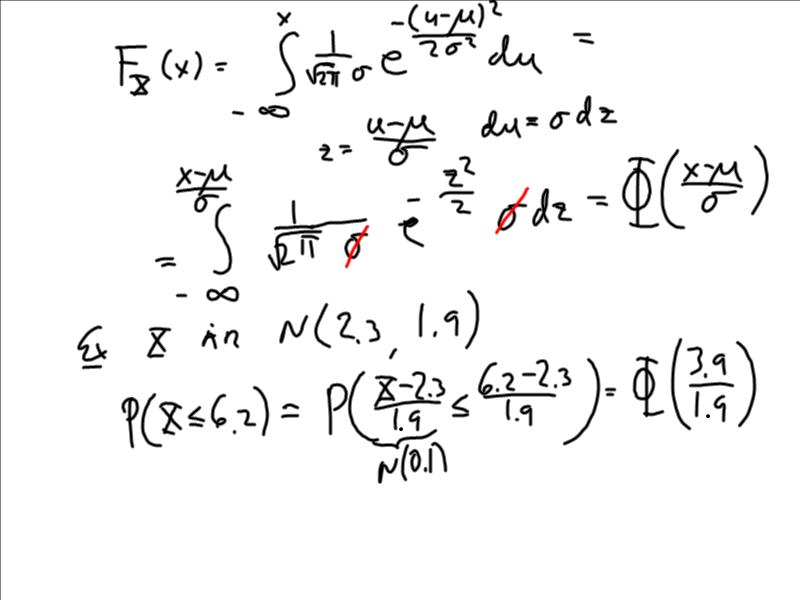 F_X(x) = ∫_{-∞}^{x} 1/(√2π σ) e^{-(u-μ)²/2σ²} du =
z = (u-μ)/σ du = σ dz
= ∫_{-∞}^{(x-μ)/σ} 1/(√2π σ) e^{-z²/2} σ dz = Φ((x-μ)/σ)
Ex X in N(2.3, 1.9)
P(X ≤ 6.2) = P((X-2.3)/1.9 ≤ (6.2-2.3)/1.9) = Φ(3.9/1.9)
N(0.1)